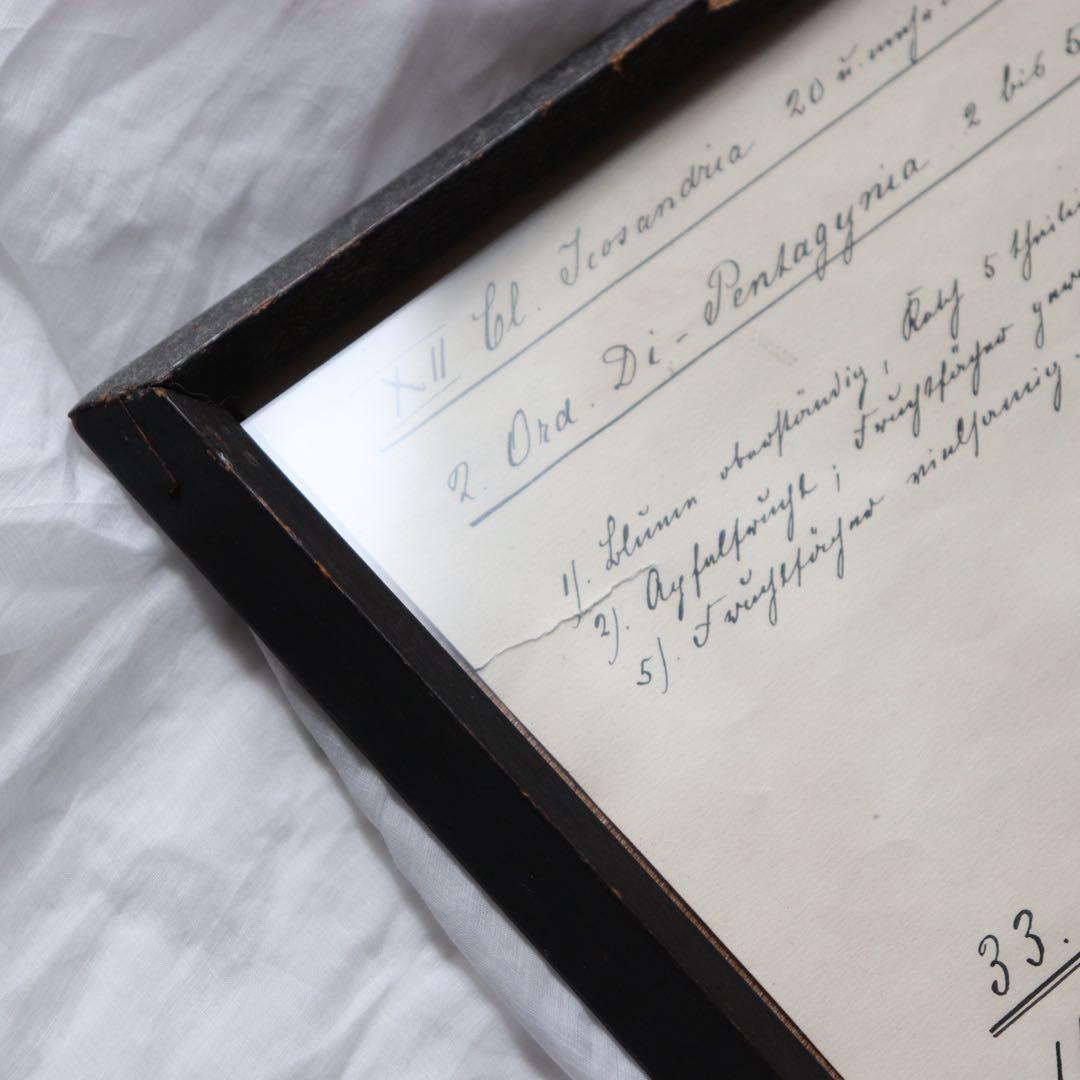 XII Cl. Icosandria 20 u. mehr
2. Ord. Di-Pentagynia 2 bis 5
1). Blume oberständig, Kelch 5 theilig
2). Apfelfrucht; Fruchtfächer
5). Fruchtfächer vielsamig
33.